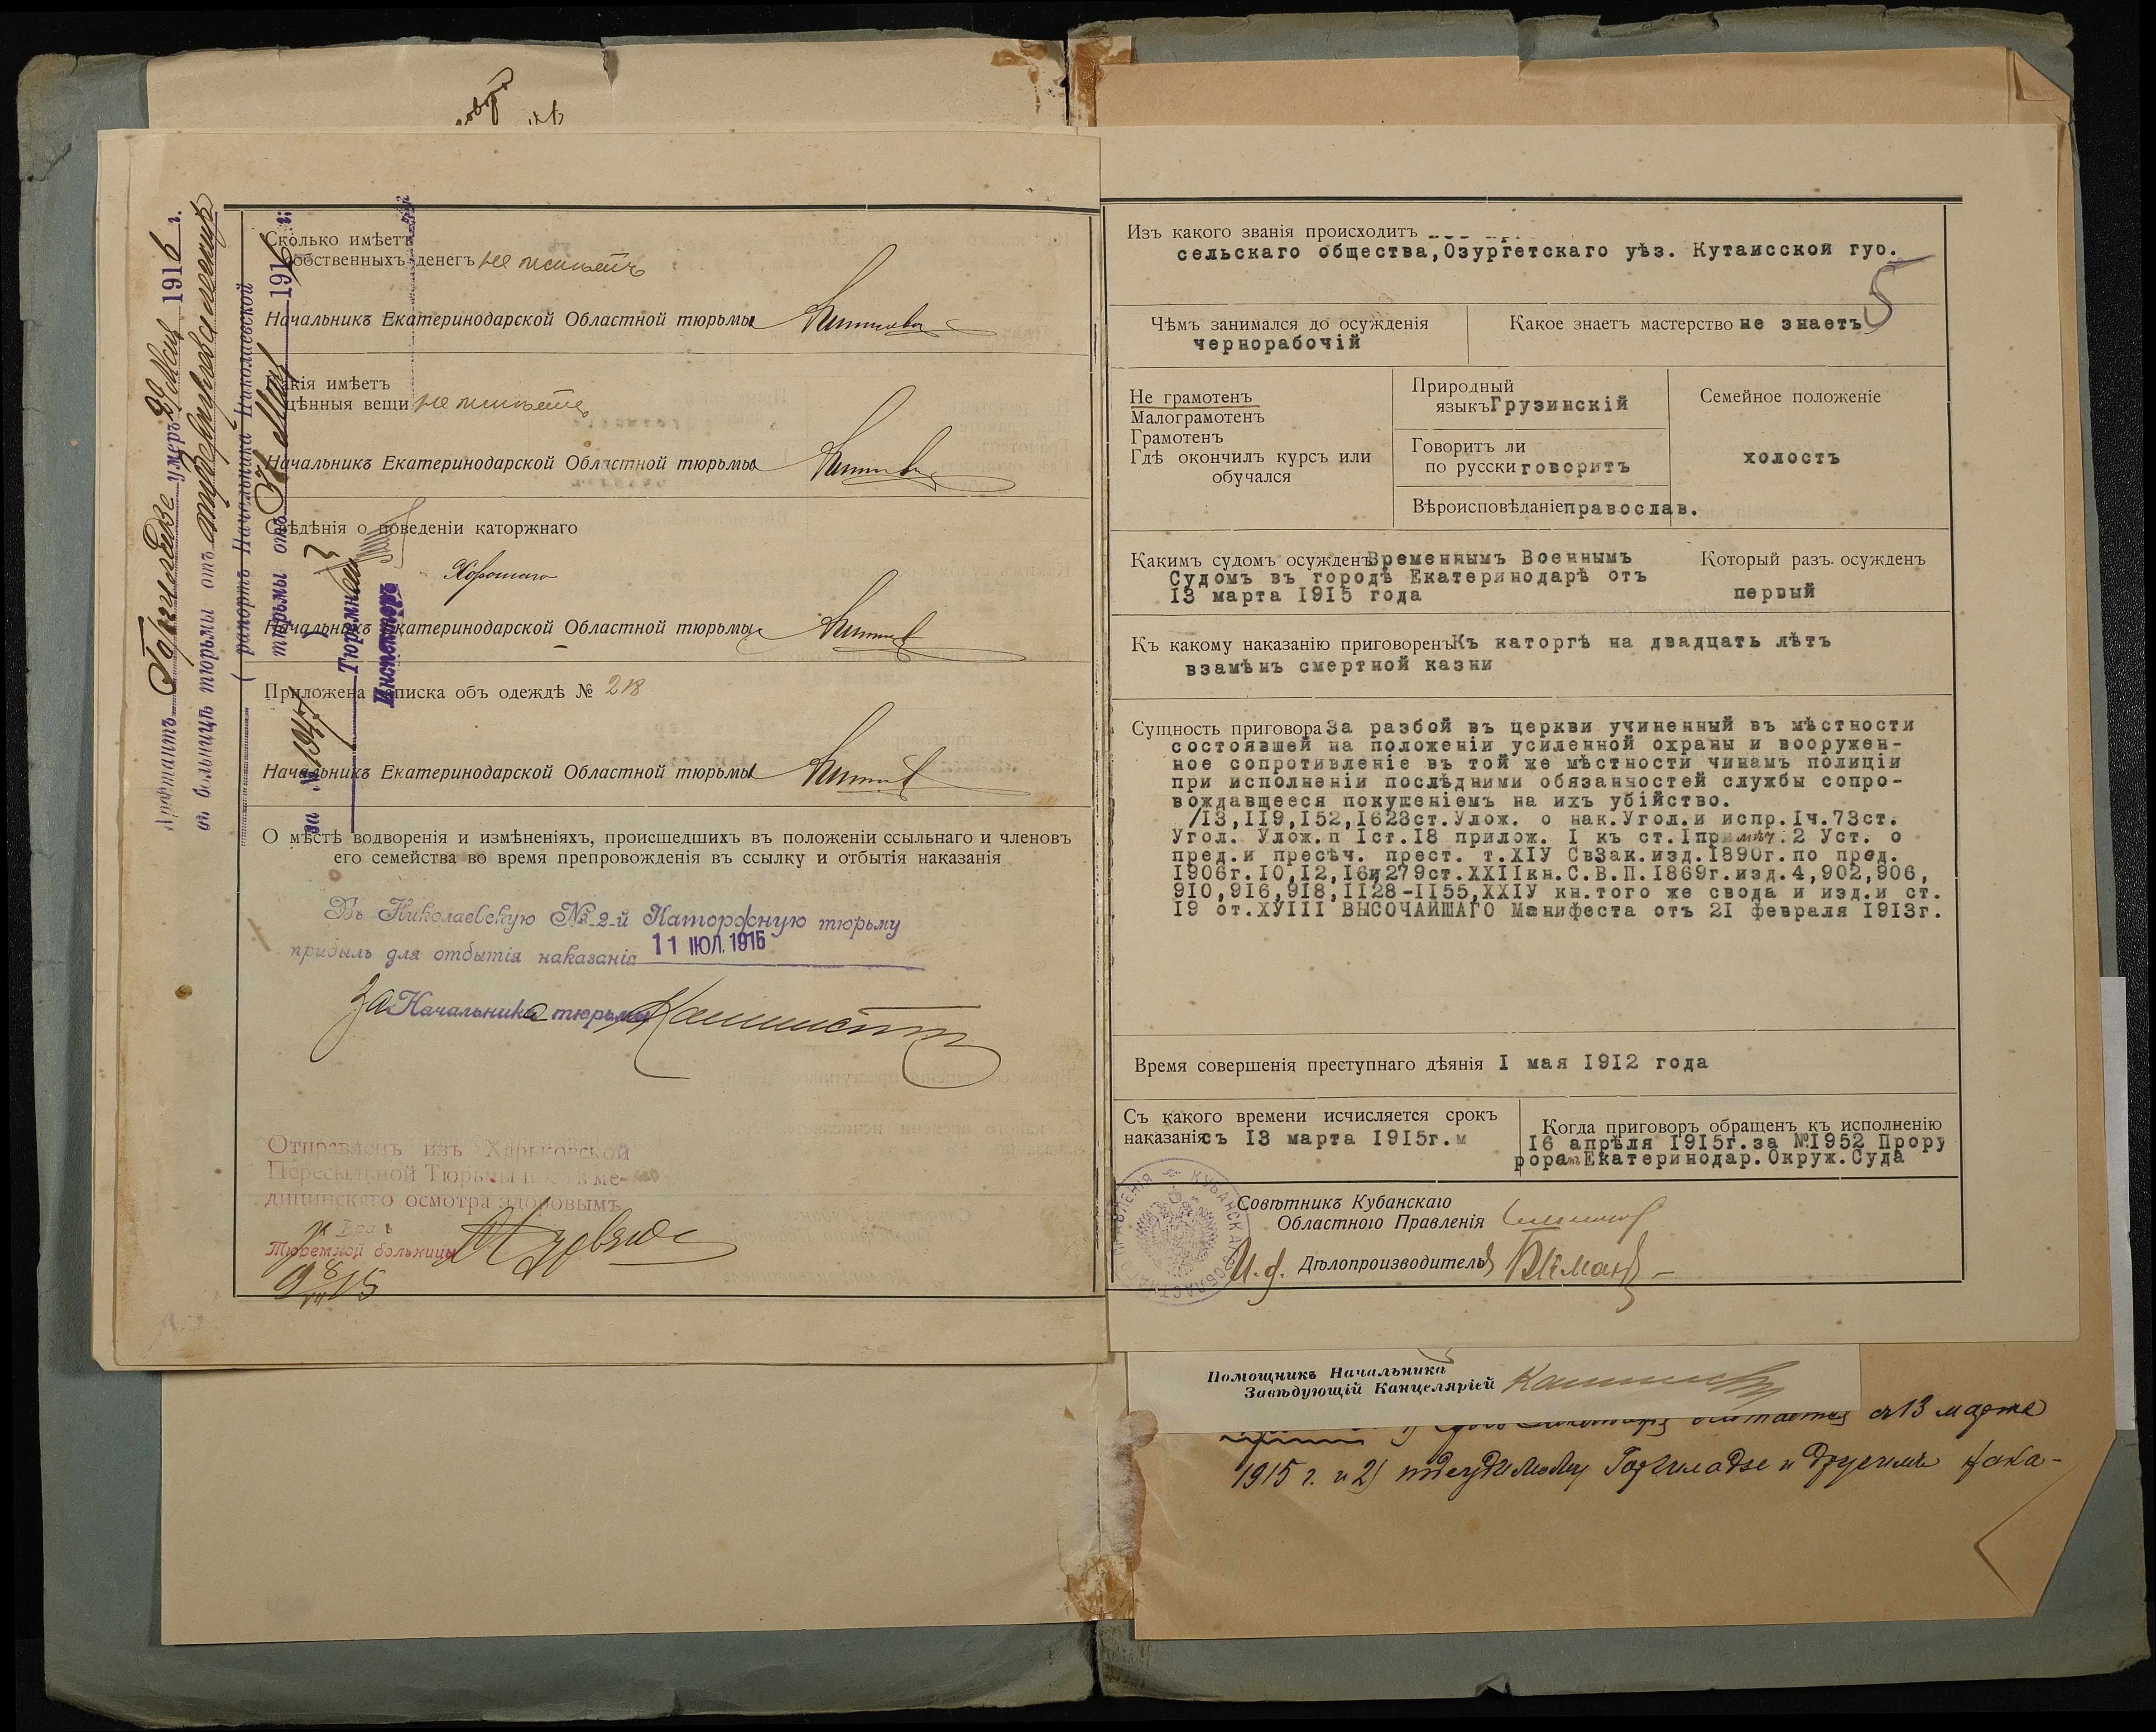 Сколько имѣетъ
собственныхъ денегъ не имѣетъ
Начальникъ Екатеринодарской Областной тюрьмы
Какія имѣетъ
цѣнныя вещи не имѣетъ
Начальникъ Екатеринодарской Областной тюрьмы
Свѣдѣнія о поведеніи каторжнаго
Хорошаго
Начальникъ Екатеринодарской Областной тюрьмы
Приложена записка объ одеждѣ № 218
Начальникъ Екатеринодарской Областной тюрьмы
О мѣстѣ водворенія и измѣненіяхъ, происшедшихъ въ положеніи ссыльнаго и членовъ
его семейства во время препровожденія въ ссылку и отбытія наказанія
Въ Николаевскую № 2-й Каторжную тюрьму
прибылъ для отбытія наказанія 11 ІЮЛ. 1915
За Начальника тюрьмы
Отправленъ изъ Харьковской
Пересыльной Тюрьмы послѣ ме-
дицинскаго осмотра здоровымъ
Тюремной больницы
Арестантъ умеръ 29 Мая 1916 г.
въ больницѣ тюрьмы отъ туберкулеза легкихъ
( рапортъ Начальника Николаевской
тюрьмы отъ Мая 1916 г.
за № 1347 )
Тюремный
Инспекторъ
Изъ какого званія происходитъ
сельскаго общества,Озургетскаго уѣз. Кутаисской губ.
5
Чѣмъ занимался до осужденія
чернорабочій
Какое знаетъ мастерство не знаетъ
Не грамотенъ
Малограмотенъ
Грамотенъ
Гдѣ окончилъ курсъ или
обучался
Природный
языкъ Грузинскій
Говоритъ ли
по русски говоритъ
Вѣроисповѣданіе православ.
Семейное положеніе
холостъ
Какимъ судомъ осужденъ Временнымъ Военнымъ
Судомъ въ городѣ Екатеринодарѣ отъ
13 марта 1915 года
Который разъ осужденъ
первый
Къ какому наказанію приговоренъ Къ каторгѣ на двадцать лѣтъ
взамѣнъ смертной казни
Сущность приговора За разбой въ церкви учиненный въ мѣстности
состоявшей на положеніи усиленной охраны и вооружен-
ное сопротивленіе въ той же мѣстности чинамъ полиціи
при исполненіи послѣдними обязанностей службы сопро-
вождавщееся покушеніемъ на ихъ убійство.
/13,119,152,1623ст.Улож. о нак.Угол.и испр.1ч.73ст.
Угол. Улож.п 1ст.18 прилож. 1 къ ст.1примѣч.2 Уст. о
пред.и пресѣч. прест. т.ХІУ СвЗак.изд.1890г.по прод.
1906г.10,12,16и279ст.ХХІІкн.С.В.П.1869г.изд.4,902,906,
910,916,918,1128-1155,ХХІУ кн.того же свода и изд.и ст.
19 от.ХУІІІ ВЫСОЧАЙШАГО Манифеста отъ 21 февраля 1913г.
Время совершенія преступнаго дѣянія 1 мая 1912 года
Съ какого времени исчисляется срокъ
наказанія съ 13 марта 1915г.
Когда приговоръ обращенъ къ исполненію
16 апрѣля 1915г.за №1952 Проку
рора Екатеринодар.Окруж.Суда
Совѣтникъ Кубанскаго
Областного Правленія
И.д. Дѣлопроизводителя
Помощникъ Начальника
Завѣдующій Канцеляріей
считается съ 13 марта
1915 г. и 2) подсудимому и другимъ